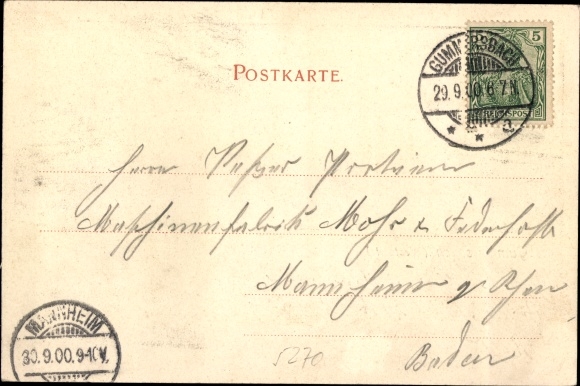 POSTKARTE.
5
REICHSPOST
GUMMERSBACH
29.9.00.6-7N.
* * a
Herrn
Maschinenfabrik Mohr & Federhaff
Mannheim a/ Rhein
Baden
5270
MANNHEIM
30.9.00.9-10V.